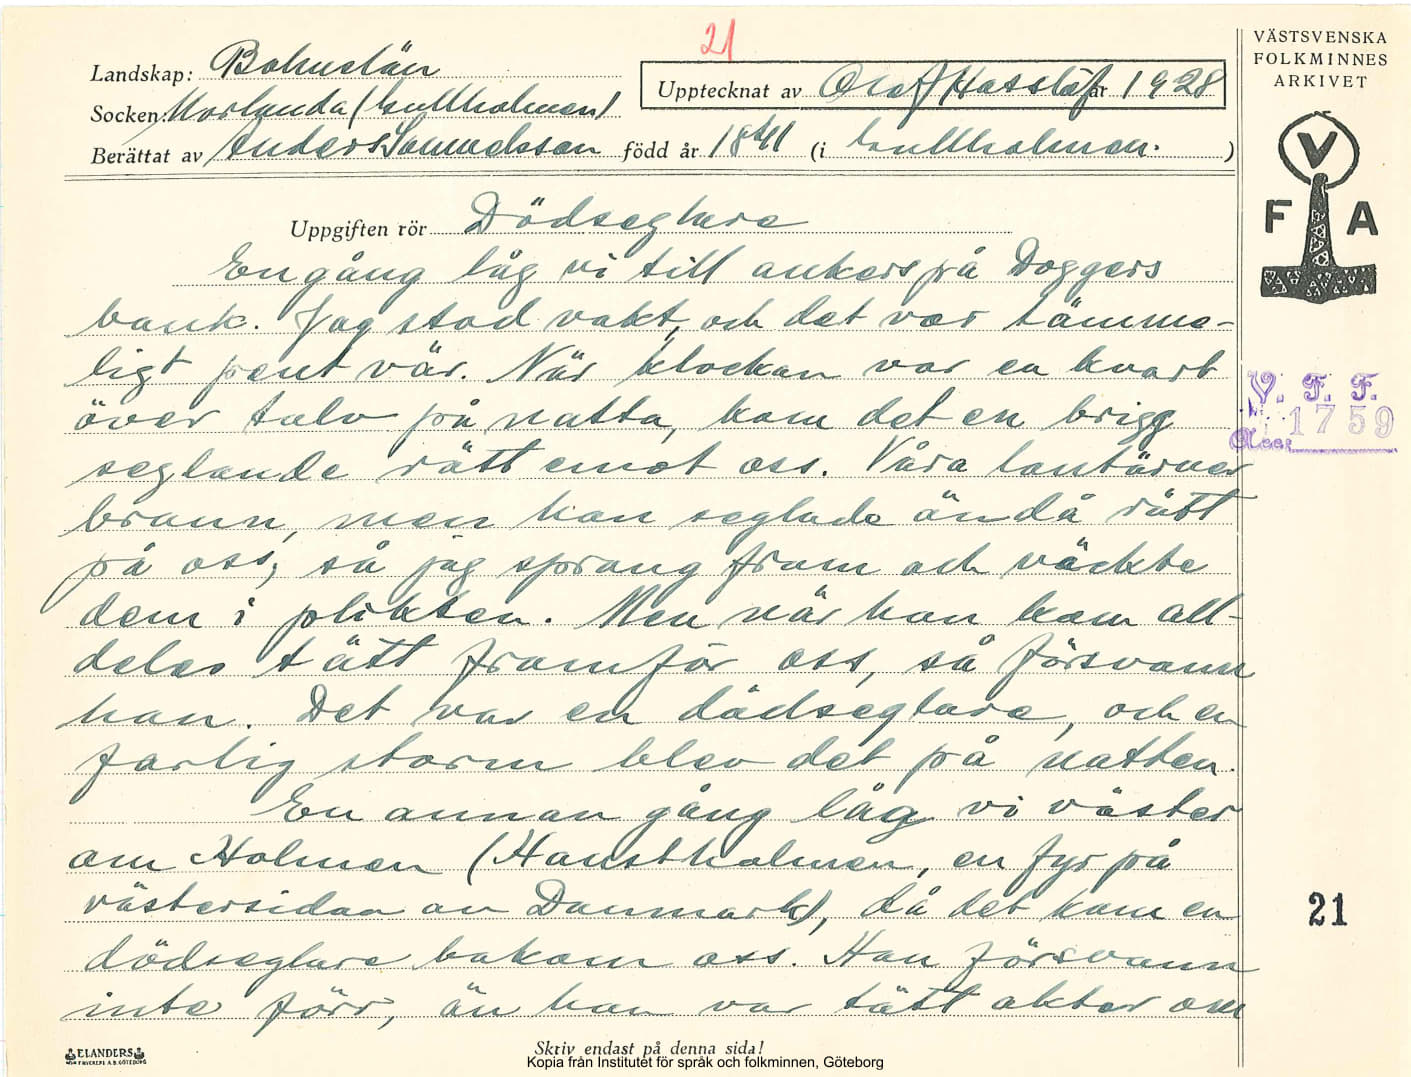 21
Landskap: Bohuslän
Socken: Morlanda (Gullholmen)
Upptecknat av Olof Hasslöf år 1928
Berättat av Anders Samuelsson född år 1841 (i Gullholmen.)
VÄSTSVENSKA
FOLKMINNES
ARKIVET
V
F A
Uppgiften rör Dödseglare
En gång låg vi till ankers på Doggers
bank. Jag stod vakt, och det var tämme-
ligt pent vär. När klockan var en kvart
över tolv på natta, kom det en brigg
seglande rätt emot oss. Våra lantärner
brann, men han seglade ändå rätt
på oss, så jag sprang fram och väckte
dem i plikten. Men när han kom all-
deles tätt framför oss, så försvann
han. Det var en dödseglare, och en
farlig storm blev det på natten.
En annan gång låg vi väster
om Holmen (Hanstholmen, en fyr på
västersidan av Danmark), då det kom en
dödseglare bakom oss. Han försvann
inte förr, än han var tätt akter om
V. F. F.
1759
Acc:
21
ELANDERS
Skriv endast på denna sida!
Kopia från Institutet för språk och folkminnen, Göteborg